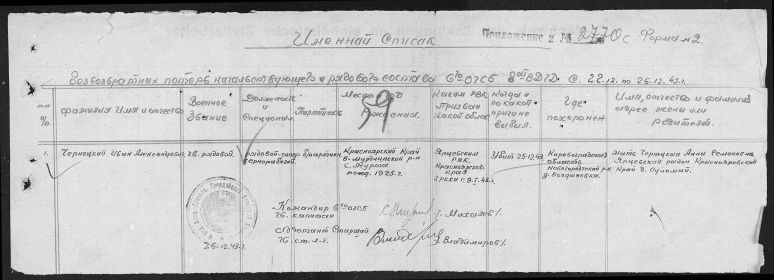 Именной Список
Приложение к № 2770 с Форма №2.
безвозвратных потерь начальствующего и рядового состава 6го ОГСБ 8ой ВДД. С. 22-12. по 26-12.43 г.
№№ п/п.
Фамилия Имя и отчество
Военное Звание
Должность и Специальн.
Партийность
Место, год Рождения.
59
Каким РВК призван какой облас
Когда и по какой причине выбыл.
Где похоронен
Имя, отчество и фамилия адрес жены или родителей.
1.
Чернецкий Иван Александрович
гв. рядовой.
рядовой-сапер
беспартийн.
Красноярский Край
рожд. 1925 г.
Ярцевским РВК. Красноярского Край
Убит 25-12.43.
Кировоградская область
Новгородской р-н
д. Богдановка.
Мать Чернецкая Анна Семеновна
Ярцевский район Красноярский
Край
Командир 6го ОГСБ
гв. капитан
/Михалев/.
Адъютант Старший
гв. ст. л-т.
/Владимиров/.
26-12.43 г.